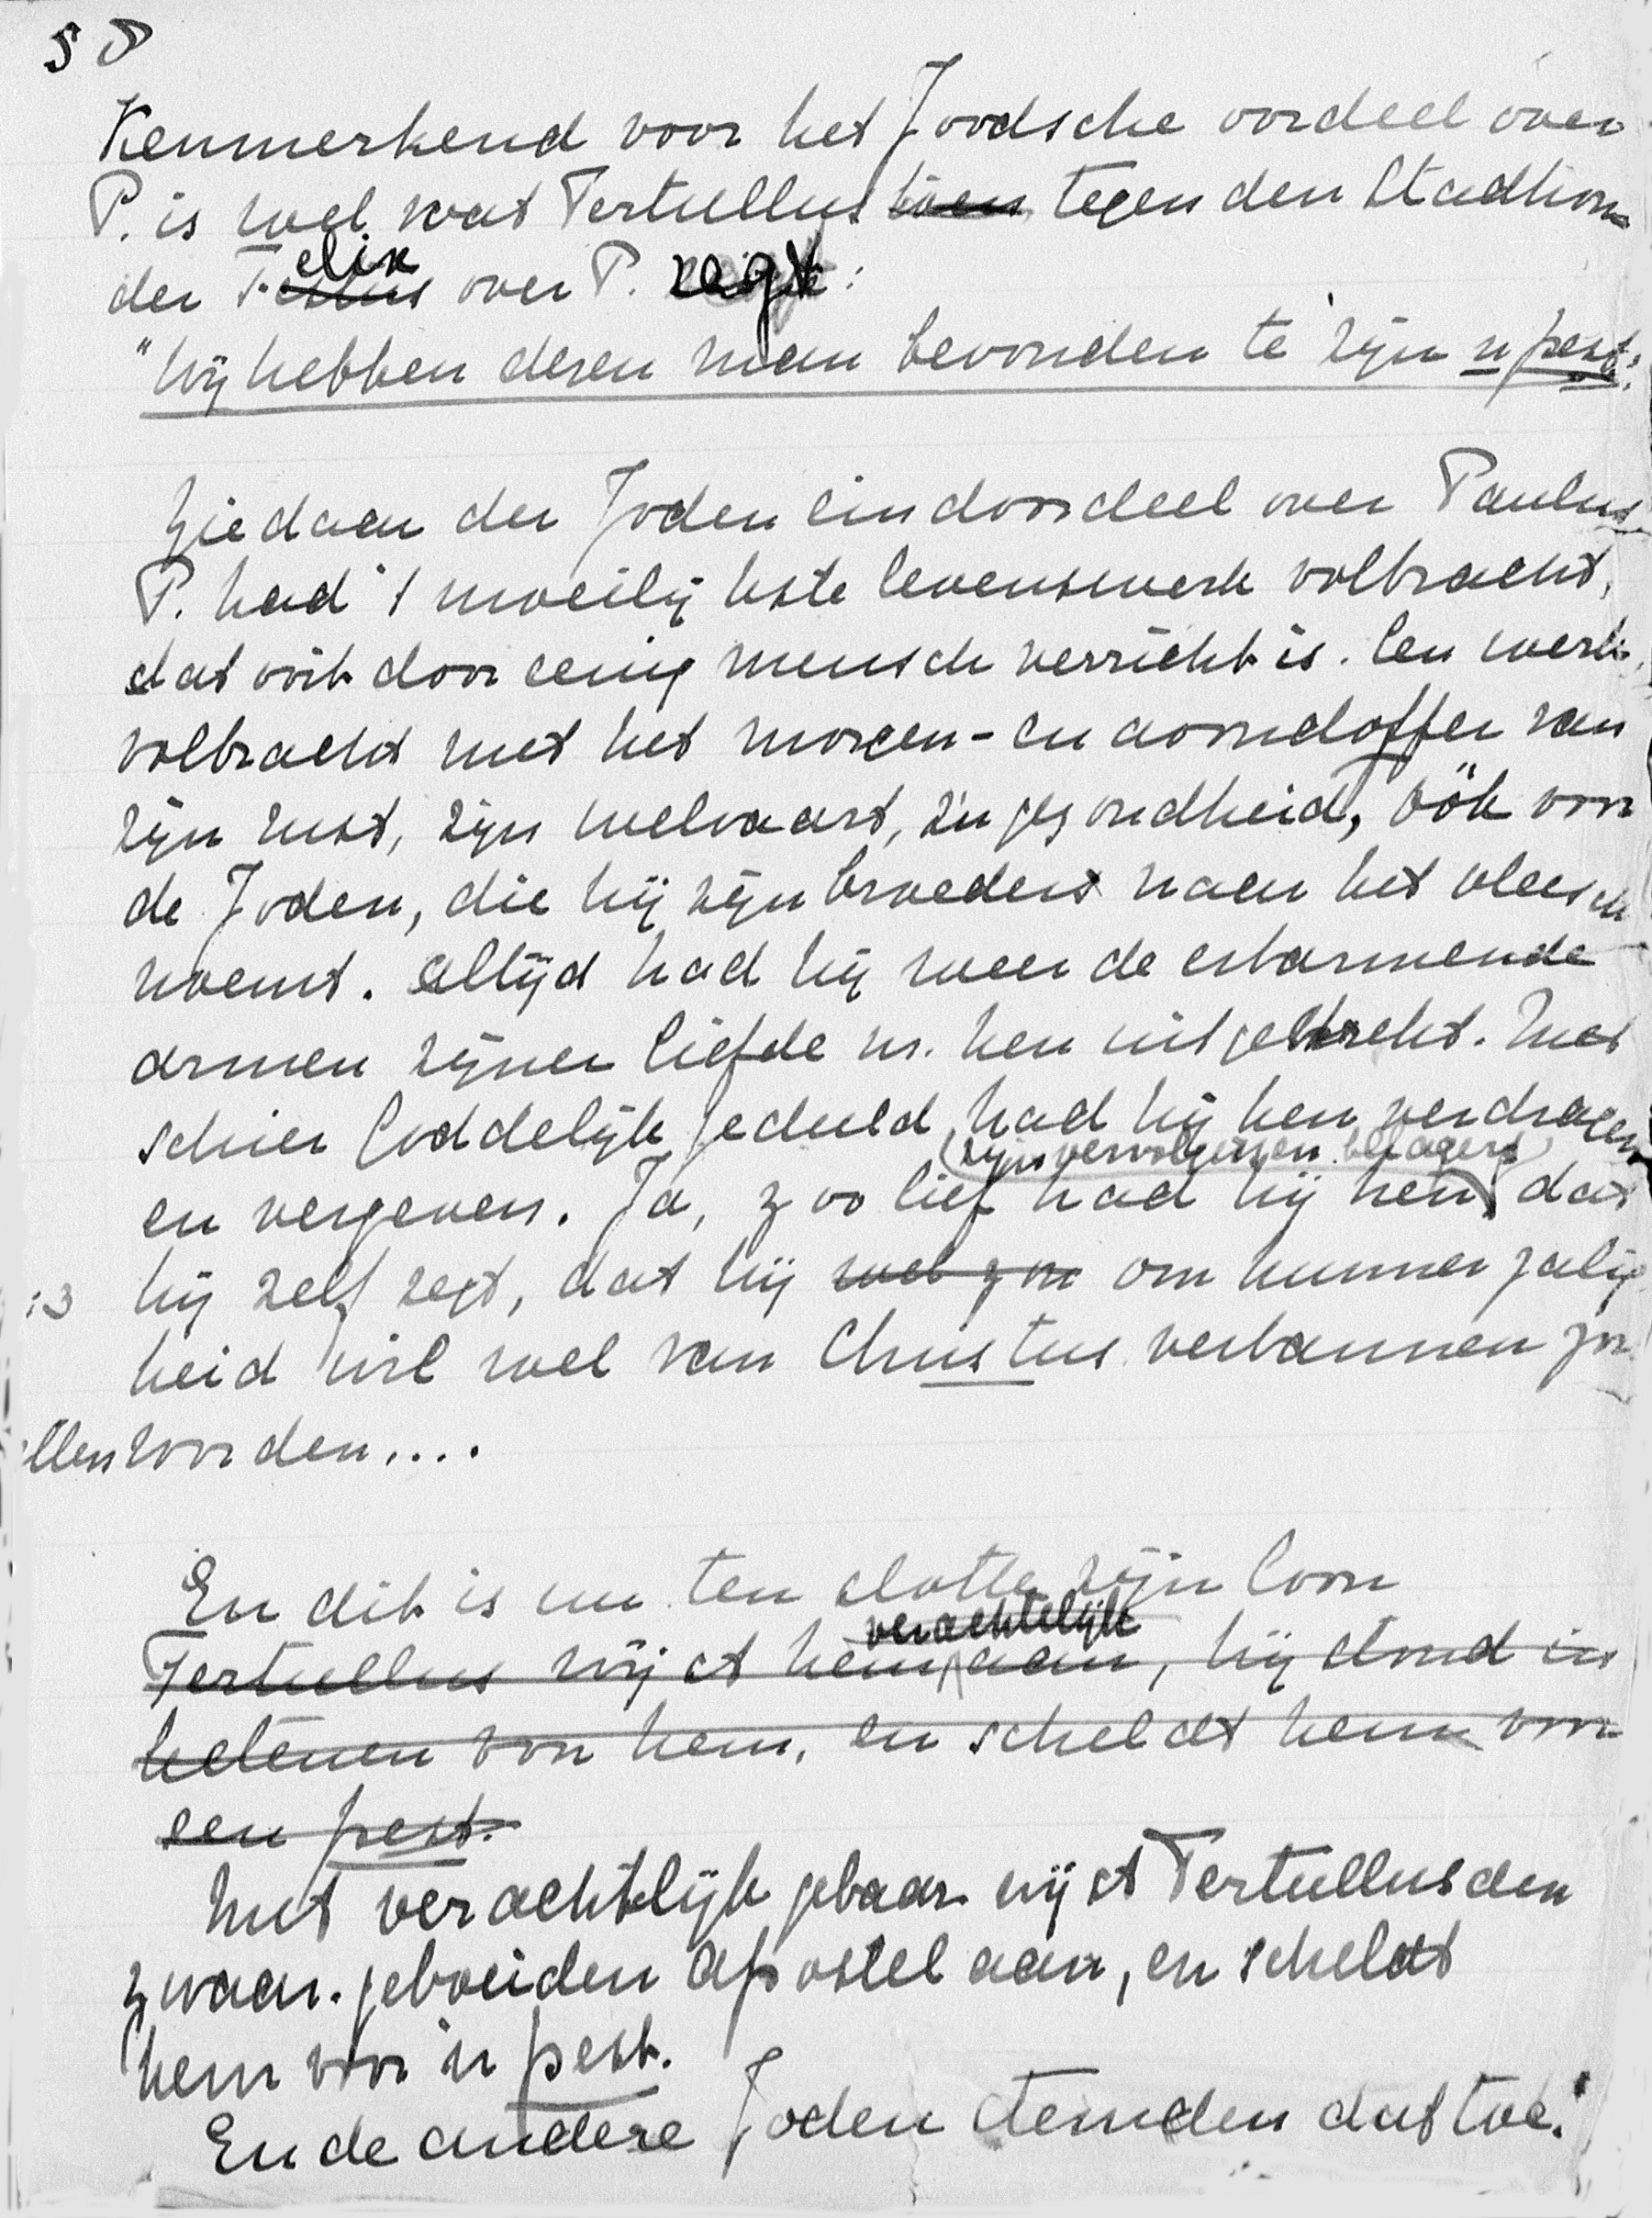 58
Kenmerkend voor het Joodsche oordeel over
P. is wel wat Tertullus toen tegen den Stadhou-
der Felix over P. zegt:
"Wij hebben dezen man bevonden te zijn 'n pest."
Ziedaar der Joden eindoordeel over Paulus
P. had 't moeilijkste levenswerk volbracht,
dat ooit door eenig mensch verricht is. Een werk,
volbracht met het morgen- en avondoffer van
zijn rust, zijn welvaart, z'n gezondheid, óók voor
de Joden, die hij zijn broeders naar het vleesch
noemt. Altijd had hij weer de erbarmende
armen zijner liefde nr. hen uitgestrekt. Met
schier Goddelijk geduld had hij hen verdragen
(zijn vervolgers en belagers)
en vergeven. Ja, zoo lief had hij hen, dat
:3 hij zelf zegt, dat hij wel zou om hunner zalig-
heid wil wel van Christus verbannen zou
llen worden....
En dit is nu ten slotte zijn loon
verachtelijk
Tertullus wijst hem aan, hij stond in
ketenen voor hem, en scheldt hem voor
een pest.
Met verachtelijk gebaar wijst Tertullus den
zwaar-geboeiden Apostel aan, en scheldt
hem voor 'n pest.
En de andere Joden stemden dat toe!